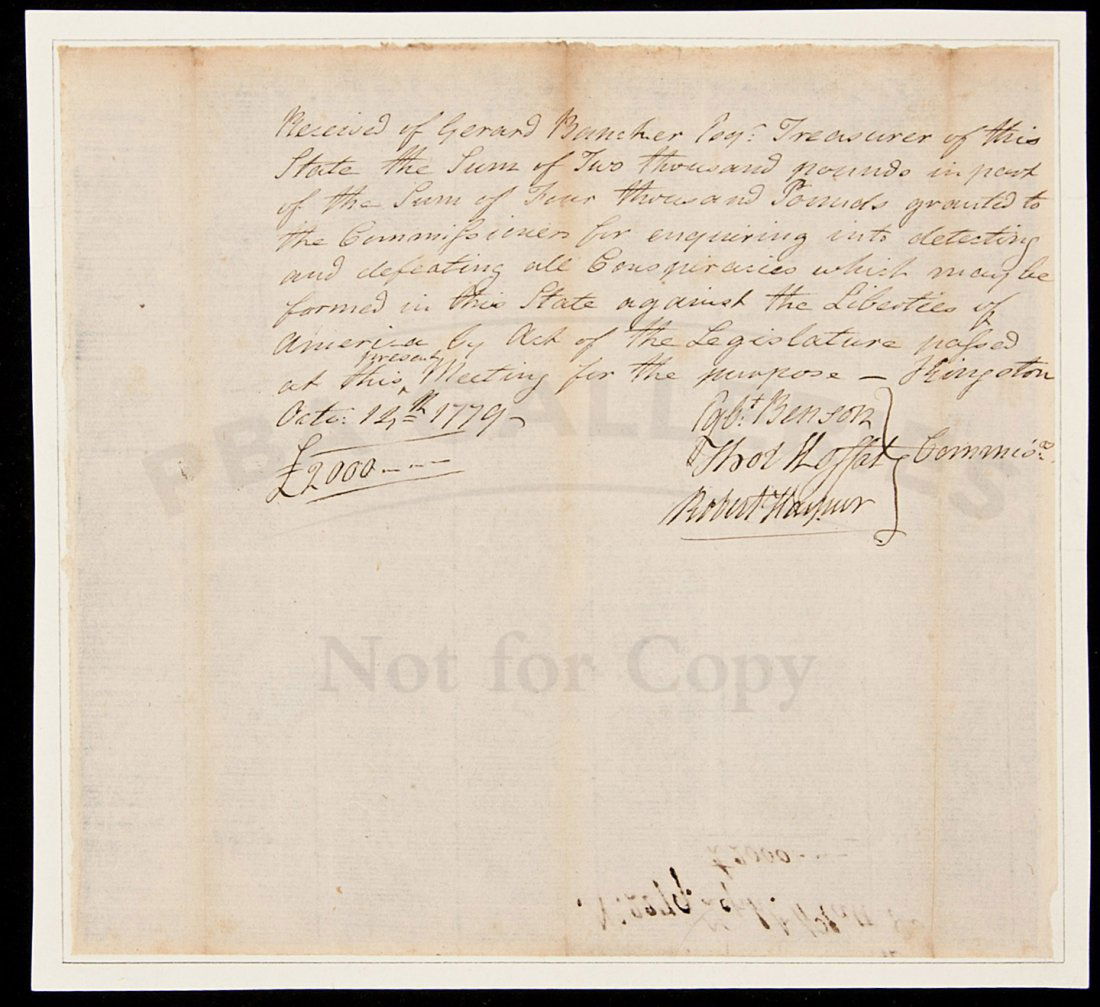 Received of Gerard Bancker Esqr. Treasurer of this
State the Sum of Two thousand pounds in part
of the Sum of Four thousand Pounds granted to
the Commissioners for enquiring into detecting
and defeating all Conspiracies which may be
formed in this State against the Liberties of
America by Act of the Legislature passed
at this present Meeting for the purpose — Kingston
Octr. 14th 1779
£2000 - - -
Egbt. Benson
Thos Moffat
Robert Harpur
Commisrs.
PBA GALLERIES
Not for Copy
£2000